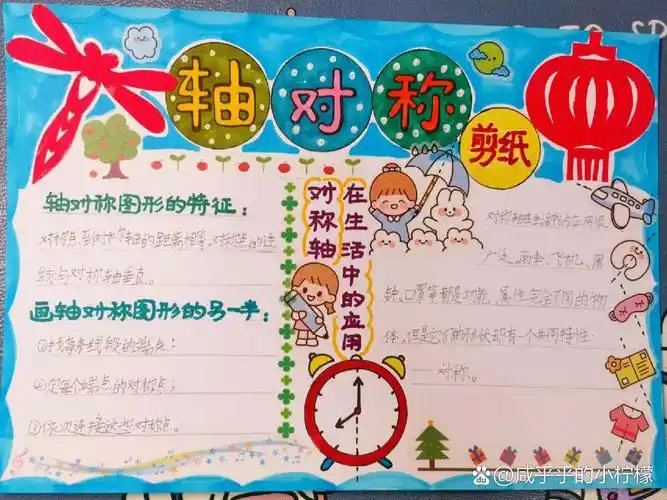 轴对称
剪纸
轴对称图形的特征：
对称点到对称轴的距离相等，对称点的连
线与对称轴垂直。
画轴对称图形的另一半：
①找每条线段的端点；
②定每个端点的对称点；
③依次连接这些对称点。
对称轴
在生活中的应用
对称轴在生活中的应用很
广泛，雨伞、飞机、闹
钟、口罩等都是功能、属性完全不同的物
体，但是它们的形状却有一个共同特性
——对称。
@咸乎乎的小柠檬